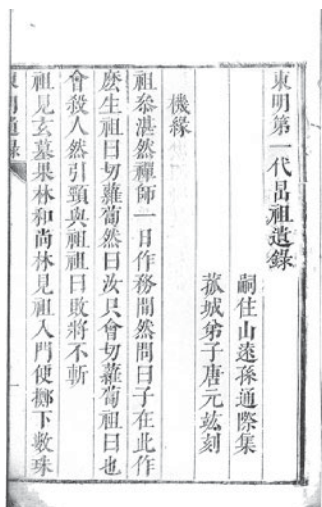 東明第一代旵祖遺錄
嗣住山遠孫通際集
菰城弟子唐元竑刻
機緣
祖叅湛然禪師一日作務間然問曰子在此作
麽生祖曰切蘿蔔然曰汝只會切蘿蔔祖曰也
會殺人然引頸與祖祖曰敗將不斬
祖見玄墓果林和尚林見祖入門便擲下數珠
東明遺錄
一